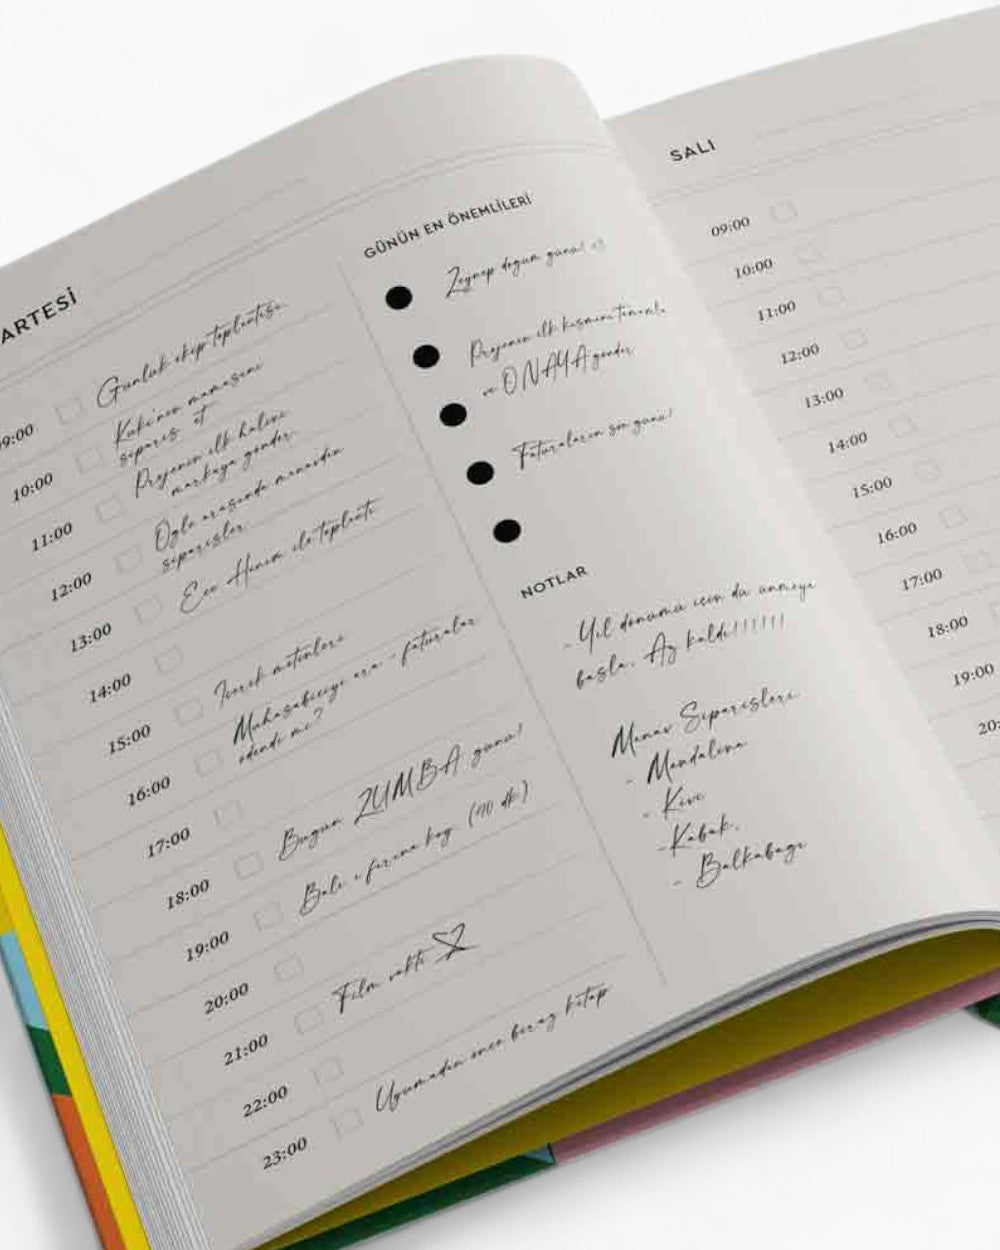 ARTESİ
09:00 Günlük ekip toplantısı
10:00 Kuki'nin mamasını
sipariş et
11:00 Projenin ilk halini
markaya gönder
12:00 Öğle arasında manavdan
siparişler
13:00 Ece Hanım ile toplantı
14:00
15:00 İçerik metinleri
16:00 Muhasabeciye ara - faturalar
ödendi mi?
17:00
18:00 Bugün ZUMBA günü!
19:00 Balı ı fırına koy (40 dk)
20:00
21:00 Film vakti
22:00
23:00 Uyumadan önce biraz kitap
GÜNÜN EN ÖNEMLİLERİ
Zeynep doğum günü!
Projenin ilk kısmını tamamla
ve ONAYA gönder
Faturaların son günü!
NOTLAR
- Yıl dönümü için düşünmeye
başla. Az kaldı!!!!!!!
Manav Siparişleri
- Mandalina
- Kivi
- Kabak.
- Balkabağı
SALI
09:00
10:00
11:00
12:00
13:00
14:00
15:00
16:00
17:00
18:00
19:00
20: